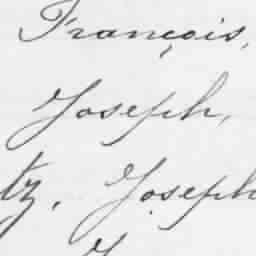 François,
Joseph,
tz. Joseph